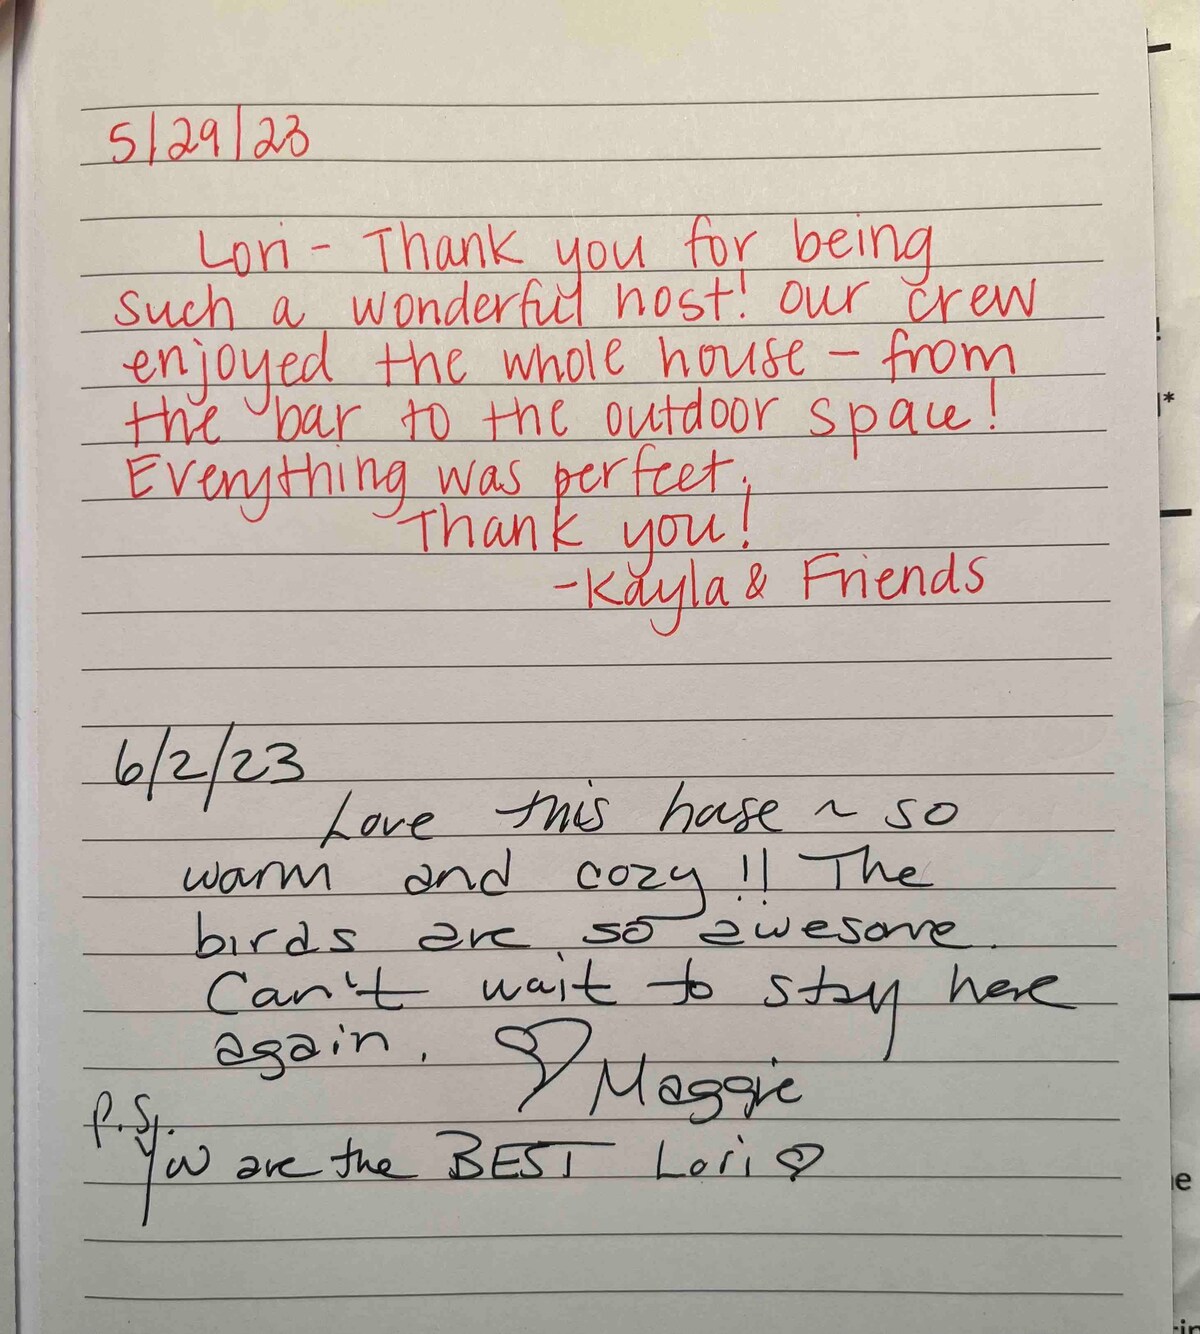 5/29/23
Lori - Thank you for being
such a wonderful host! Our crew
enjoyed the whole house - from
the bar to the outdoor space!
Everything was perfect.
Thank you!
-Kayla & Friends
6/2/23
Love this hase ~ so
warm and cozy!! The
birds are so awesome.
Can't wait to stay here
again. ♡ Maggie
P.S.
You are the BEST Lori ♡